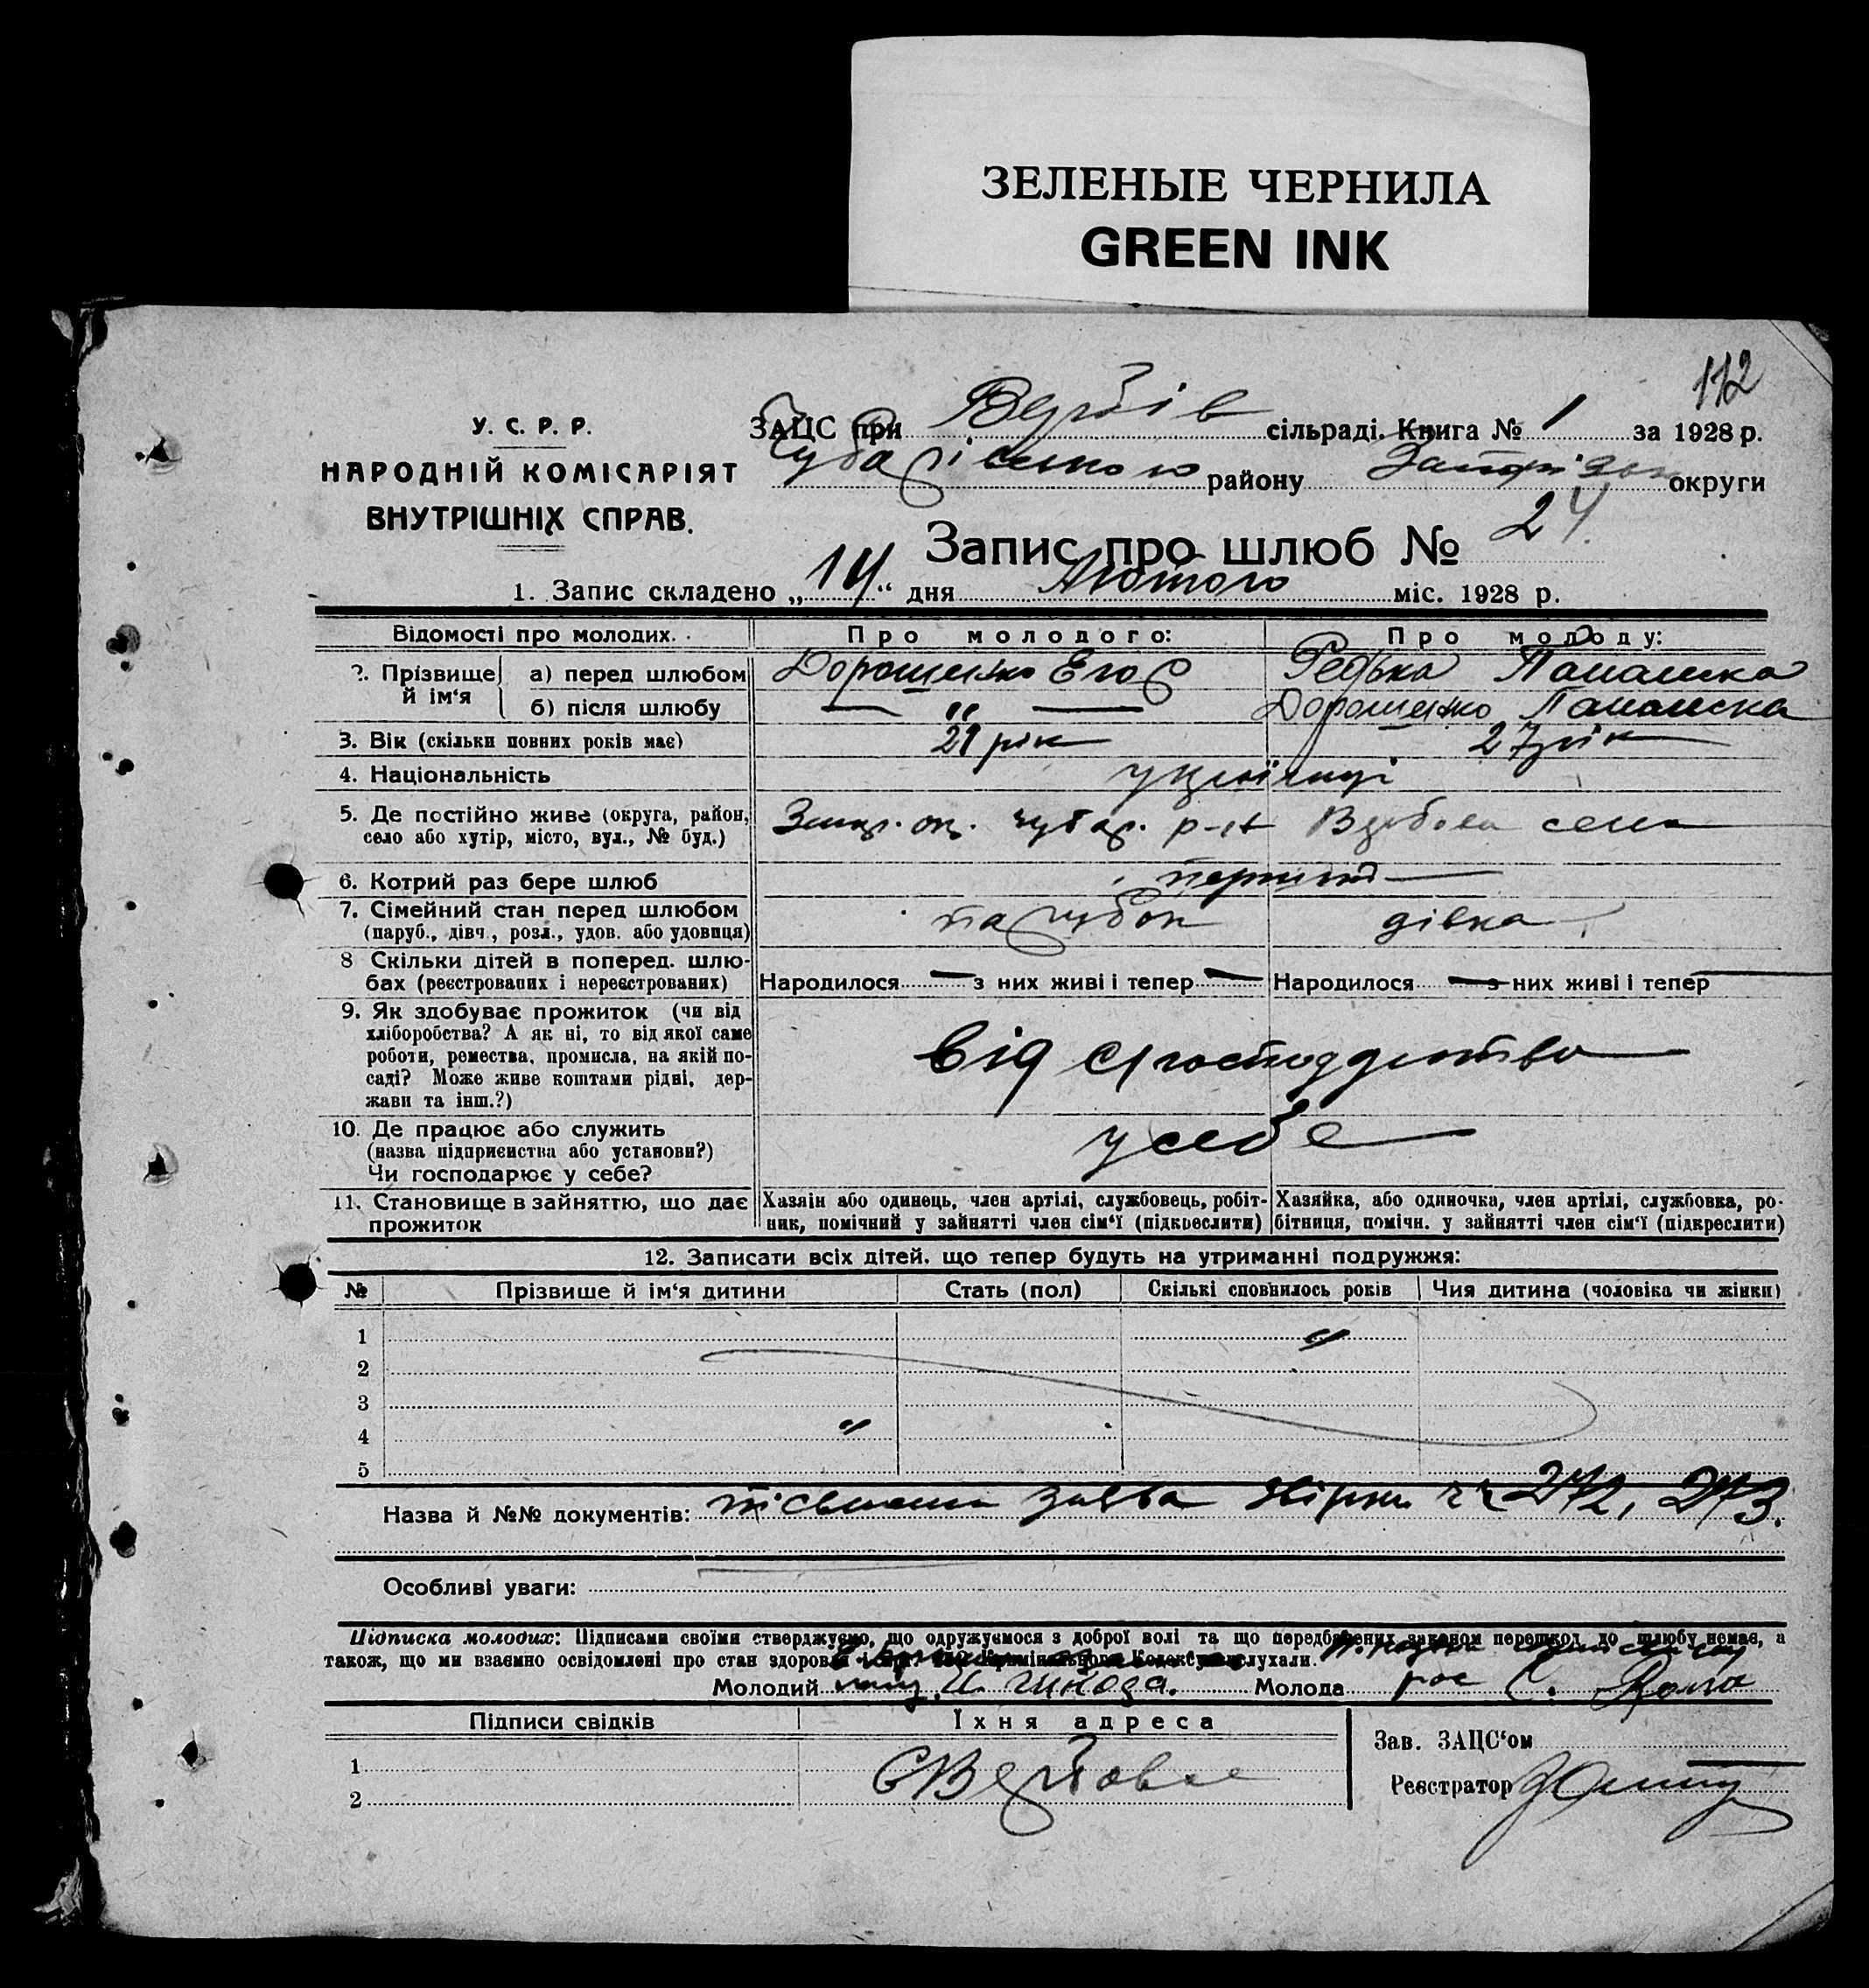 ЗЕЛЕНЫЕ ЧЕРНИЛА
GREEN INK
112
У. С. Р. Р.
НАРОДНІЙ КОМІСАРІЯТ
ВНУТРІШНІХ СПРАВ.
ЗАЦС при Вербів сільраді. Книга № 1 за 1928 р.
Чубарівського району округи
Запис про шлюб № 24
1. Запис складено „14“ дня Лютого міс. 1928 р.
Відомості про молодих. Про молодого: Про молоду:
2. Прізвище й ім‘я
а) перед шлюбом Дорошенко Егор Редька Панашка
б) після шлюбу — „ — Дорошенко Панашка
3. Вік (скільки повних років має) 21 рік 27 рік
4. Національність українці
5. Де постійно живе (округа, район, село або хутір, місто, вул., № буд.) Запор. ок. Чубар. р-н Вербова село
6. Котрий раз бере шлюб перший
7. Сімейний стан перед шлюбом (паруб., дівч., розл., удов. або удовиця) парубок дівка
8 Скільки дітей в поперед. шлюбах (реєстрованих і нереєстрованих) Народилося — з них живі і тепер — Народилося — з них живі і тепер —
9. Як здобуває прожиток (чи від
хліборобства? А як ні, то від якої саме
роботи, ремества, промисла, на якій по-
саді? Може живе коштами рідні, дер-
жави та інш.?)
від с/господарства
10. Де працює або служить
(назва підприємства або установи?)
Чи господарює у себе?
у себе
11. Становище в зайняттю, що дає прожиток
Хазяін або одинець, член артілі, службовець, робіт-
ник, помічний у зайнятті член сім‘ї (підкреслити)
Хазяйка, або одиночка, член артілі, службовка, ро-
бітниця, помічн. у зайнятті член сім‘ї (підкреслити)
12. Записати всіх дітей, що тепер будуть на утриманні подружжя:
№ Прізвише й ім‘я дитини Стать (пол) Скількі сповнилось років Чия дитина (чоловіка чи жінки)
1
2
3
4
5
Назва й №№ документів: пісьмена заява 272, 273.
Особливі уваги:
Підписка молодих: Підписами своїми стверджуємо, що одружуємося з доброї волі та що передбачених законом перешкод до шлюбу немає, а
також, що ми взаємно освідомлені про стан здоровля і Кримінального Кодексу вислухали.
Молодий Молода
Підписи свідків Їхня адреса
1
2
С Вербове
Зав. ЗАЦС‘ом
Реєстратор